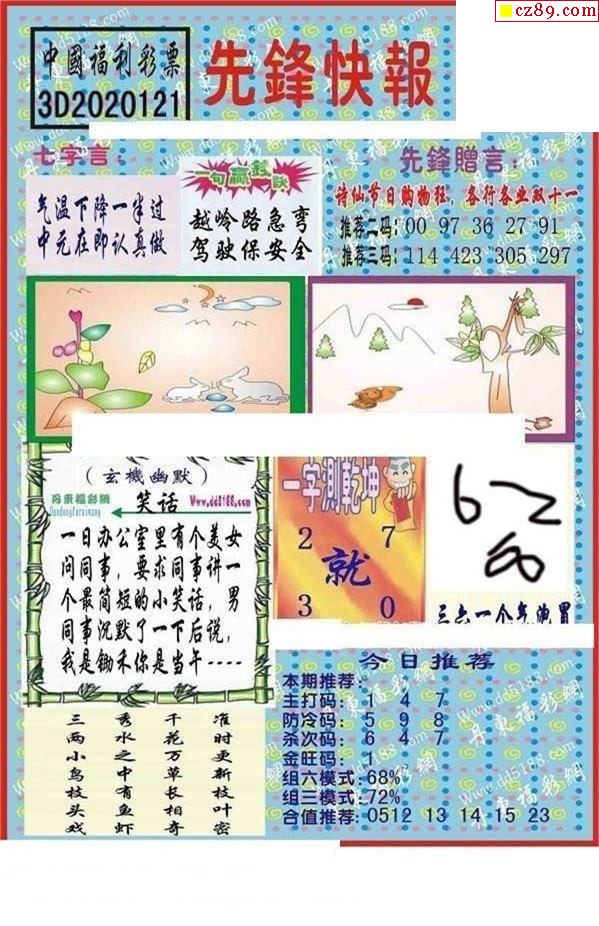 cz89.com
中國福利彩票
3D2020121
先鋒快報
七字言：
气温下降一半过
中元在即认真做
一句赢钱诀
越岭路急弯
驾驶保安全
先鋒贈言：
诗仙节日购物狂，各行各业双十一
推荐二码：00 97 36 27 91
推荐三码：114 423 305 297
（玄機幽默）
丹東福彩網
Dandongfucaiwang
Www.dd5188.com
笑话
一日办公室里有个美女
问同事，要求同事讲一
个最简短的小笑话，男
同事沉默了一下后说，
我是锄禾你是当午----
一字測乾坤
2 7
就
3 0
三六一个气泡冒
今日推荐
本期推荐：
主打码：1 4 7
防冷码：5 9 8
杀次码：6 4 7
金旺码：1
组六模式：68%
组三模式：72%
合值推荐：0512 13 14 15 23
三 秀 千 准
两 水 花 时
小 之 万 更
鸟 中 草 新
枝 有 长 枝
头 鱼 相 叶
戏 虾 奇 密